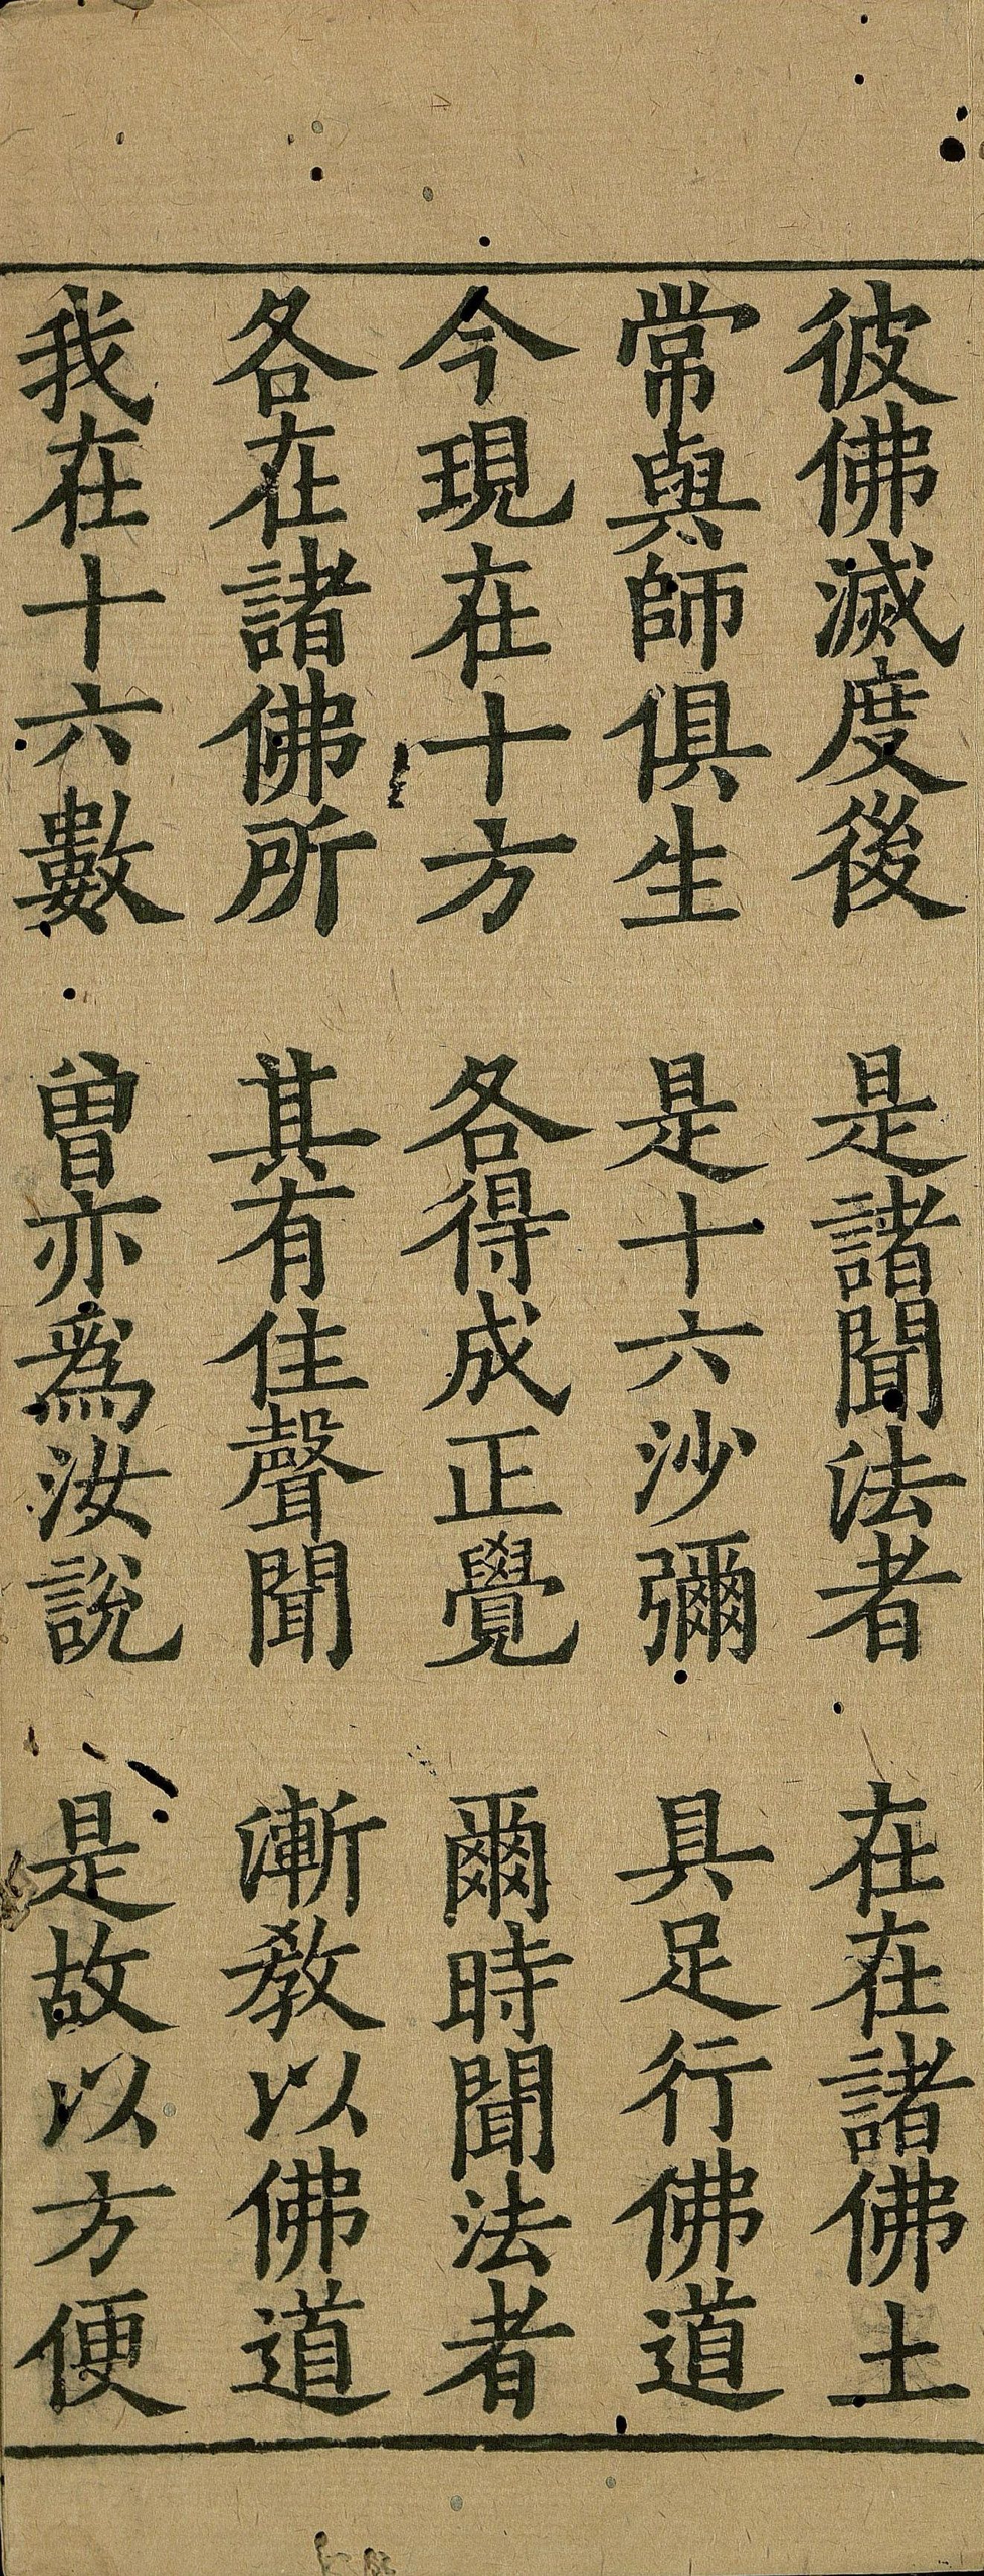 彼佛滅度後　是諸聞法者　在在諸佛土
常與師俱生　是十六沙彌　具足行佛道
今現在十方　各得成正覺　爾時聞法者
各在諸佛所　其有住聲聞　漸教以佛道
我在十六數　曾亦爲汝說　是故以方便